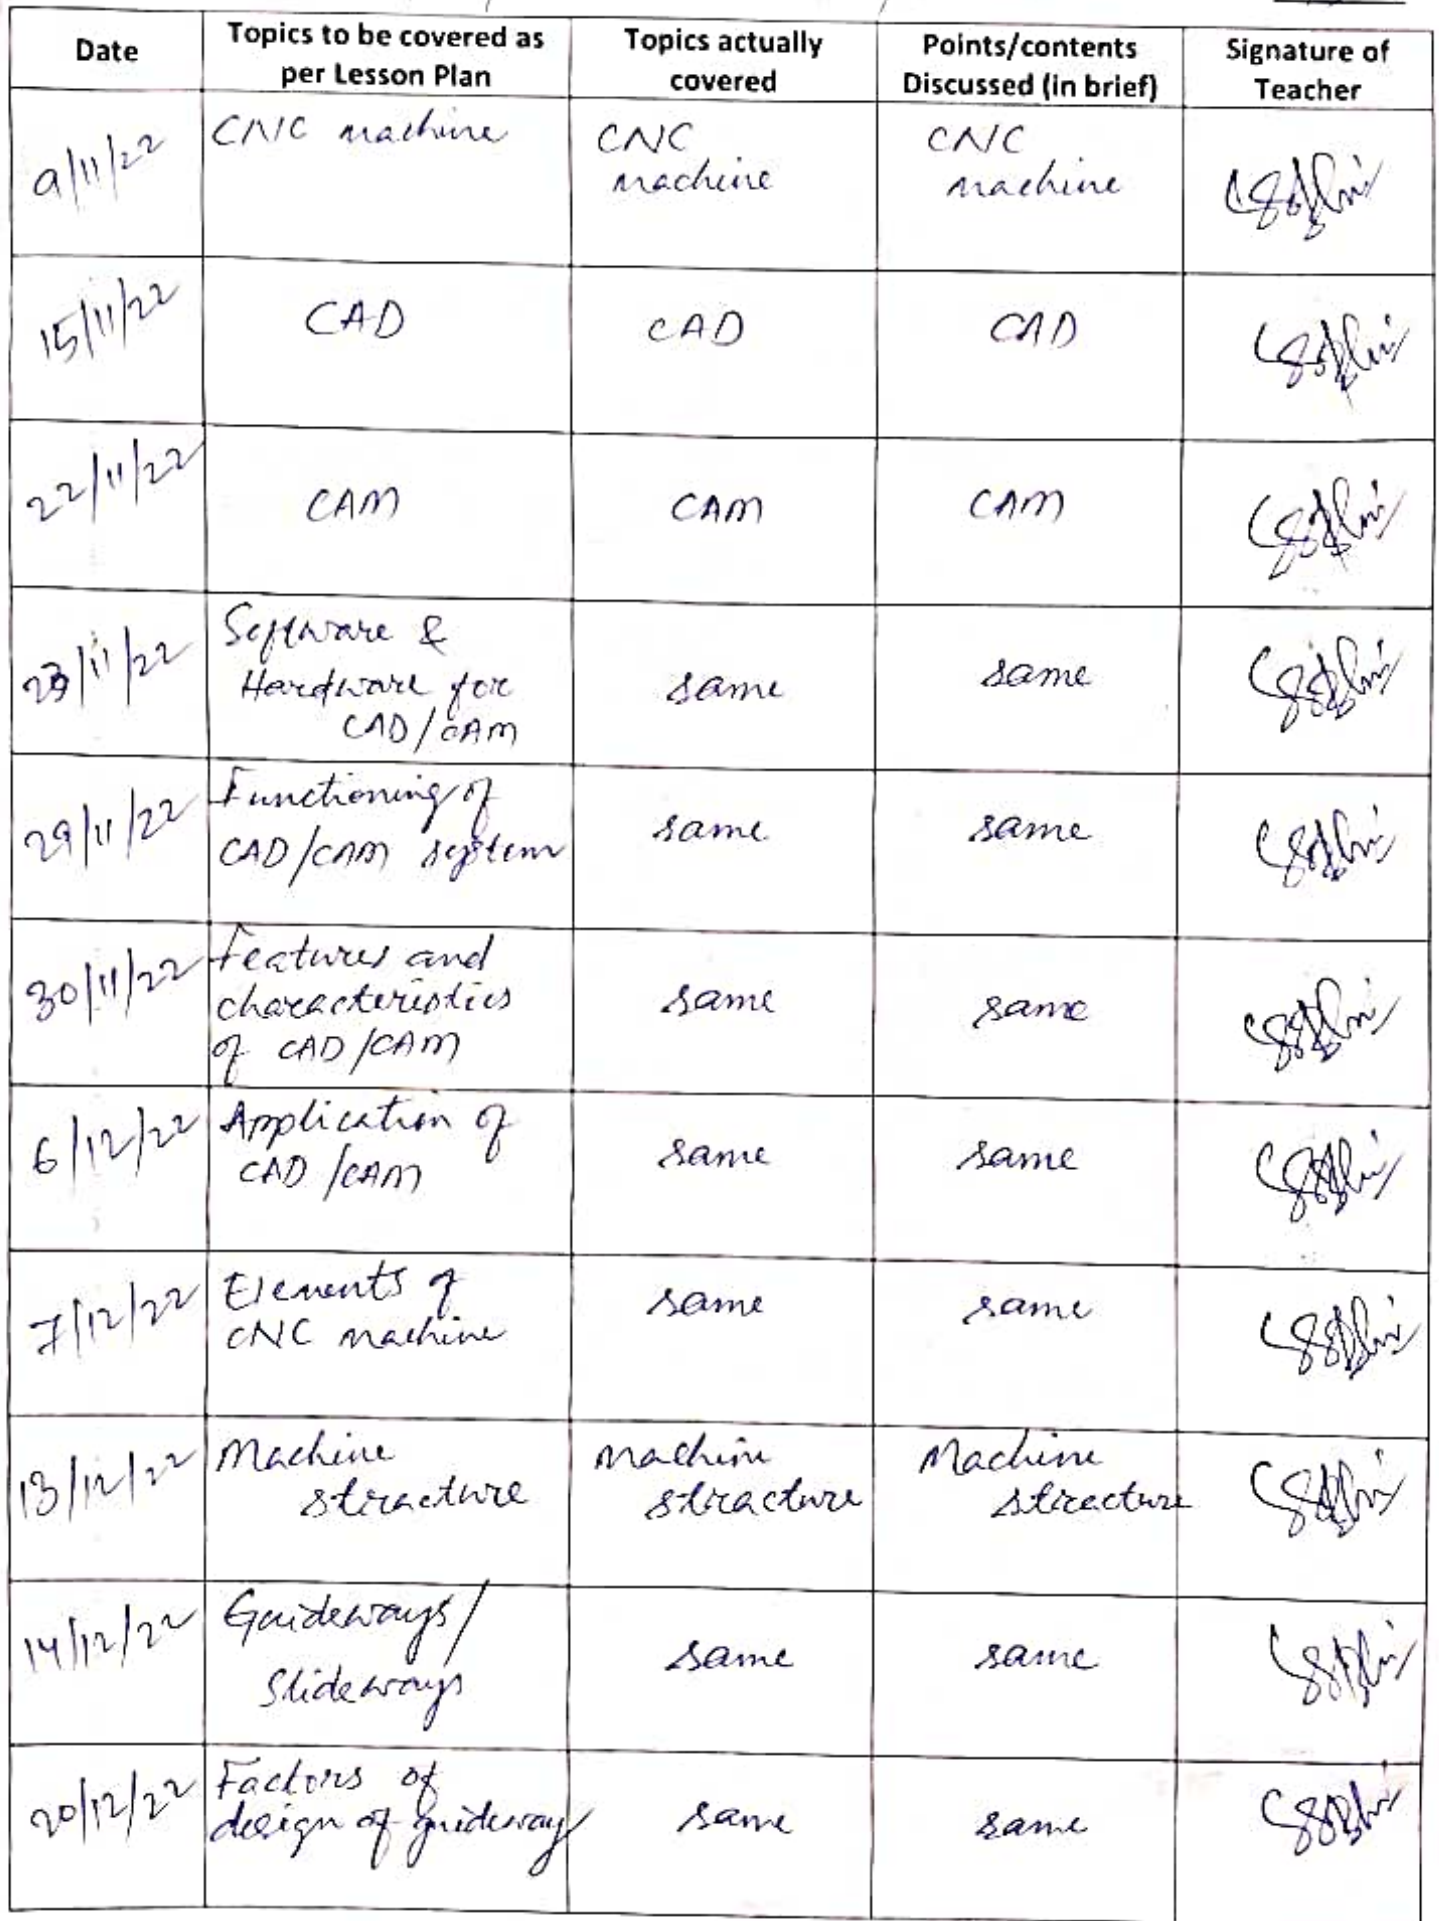 Date
Topics to be covered as
per Lesson Plan
Topics actually
covered
Points/contents
Discussed (in brief)
Signature of
Teacher
9/11/22
CNC machine
CNC
machine
CNC
machine
15/11/22
CAD
CAD
CAD
22/11/22
CAM
CAM
CAM
23/11/22
Software &
Hardware for
CAD/CAM
same
same
29/11/22
Functioning of
CAD/CAM system
same
same
30/11/22
Features and
characteristics
of CAD/CAM
same
same
6/12/22
Application of
CAD/CAM
same
same
7/12/22
Elements of
CNC machine
same
same
13/12/22
Machine
structure
machine
structure
Machine
structure
14/12/22
Guideways/
Slideways
same
same
20/12/22
Factors of
design of guideway
same
same